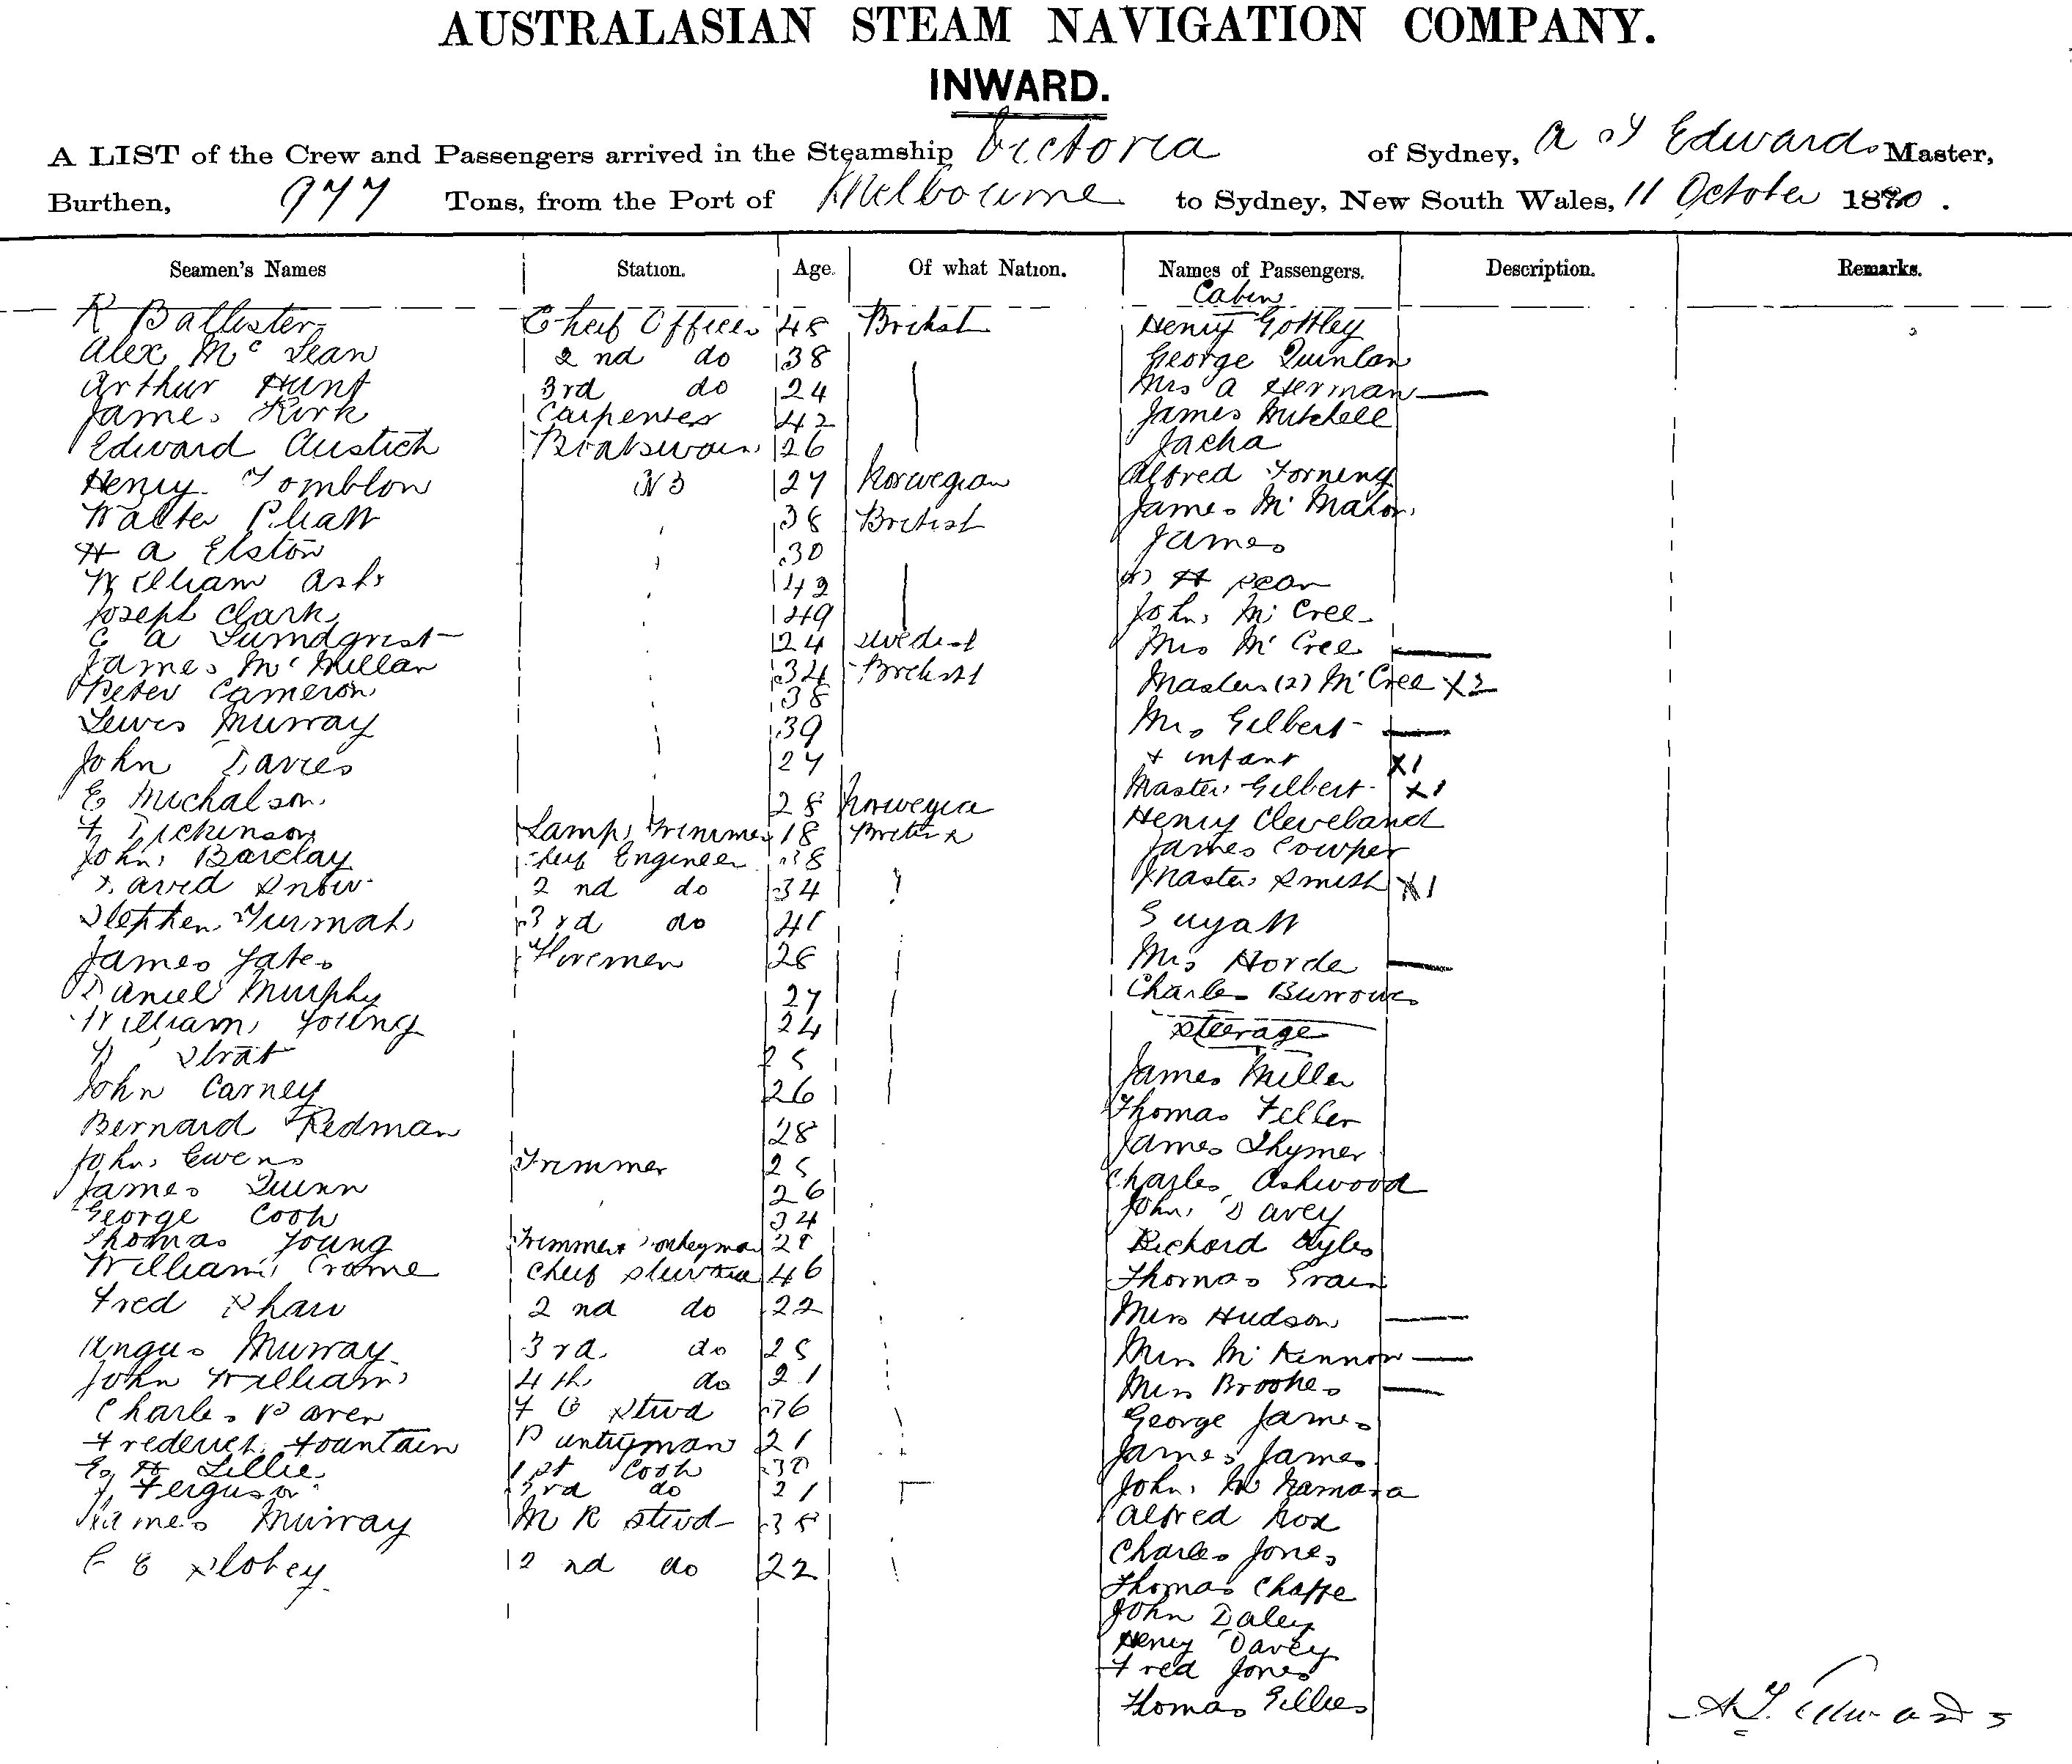 AUSTRALASIAN STEAM NAVIGATION COMPANY.
INWARD.
A LIST of the Crew and Passengers arrived in the Steamship Victoria of Sydney, A T Edwards Master,
Burthen, 977 Tons, from the Port of Melbourne to Sydney, New South Wales, 11 October 1880.
Seamen's Names Station. Age. Of what Nation. Names of Passengers. Description. Remarks.
Cabin
R Ballister Cheif Officer 48 British Henry Gottley
Alex Mc Lean 2nd do 38 George Quinlan
Arthur Hunt 3rd do 24 Mrs A Herman
James Kirk Carpenter 42 James Mitchell
Edward Austich Boatswain 26 Jacka
Henry Tomblon AB 27 Norwegian Alfred Forning
Walter Phatt 38 British James Mc Mahon
H A Elston 30 James
William Ash 42 H
Joseph Clark 49 John Mc Cree
C A Lumdqrist 24 Swedish Mrs Mc Cree
James Mc Millan 34 British Masters (2) Mc Cree X2
Peter Cameron 38
Lewis Murray 39 Mrs Gilbert
John Davies 27 + infant X1
E Michalson 28 Norwegia Master Gilbert X1
F Dickinson Lamp Trimmer 18 British Henry Cleveland
John Barclay Cheif Engineer 38 James Cowper
David Snow 2nd do 34 Master Smith X1
Stephen 3rd do 41 Guyatt
James Yates Firemen 28 Mrs Horde
Daniel Murphy 27 Charles Burrows
William Young 24 Steerage
Strat 25 James Miller
John Carney 26 Thomas Feller
Bernard Redman 28 James Thymer
John Ewens Trimmer 25 Charles Ashwood
James Quinn 26 John Davey
George Cook 34 Richard Hyles
Thomas Young Trimmer 28 Thomas Grain
William Crome Cheif Steward 46
Fred Shaw 2nd do 22 Miss Hudson
Angus Murray 3rd do 25 Miss Mc Kennon
John Williams 4th do 21 Miss Brookes
Charles F C Stwd 36 George James
Frederick Fountain Pantryman 21 James James
H Lillie 1st Cook 38 John Mc Namara
J Ferguson 3rd do 21 Alfred Nox
James Murray M R Stwd 38 Charles Jones
E Slokey 2nd do 22 Thomas Chaffe
John Daley
Henry Davey
Fred Jones
Thomas Gillies
A T Edwards